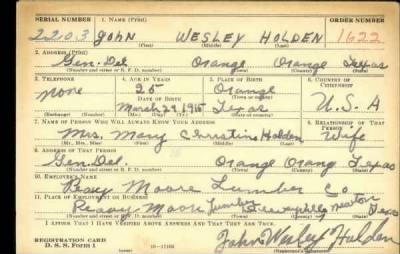 SERIAL NUMBER 1. NAME (Print) ORDER NUMBER
2203 John WESLEY HOLDEN 1622
(First) (Middle) (Last)
2. ADDRESS (Print)
Gen. Del. Orange Orange Texas
(Number and street or R. F. D. number) (Town) (County) (State)
3. TELEPHONE 4. AGE IN YEARS 5. PLACE OF BIRTH 6. COUNTRY OF CITIZENSHIP
none 25 Orange
DATE OF BIRTH (Town or county)
March 29 1915 Texas U.S.A
(Exchange) (Number) (Mo.) (Day) (Yr.) (State or country)
7. NAME OF PERSON WHO WILL ALWAYS KNOW YOUR ADDRESS 8. RELATIONSHIP OF THAT PERSON
Mrs. Mary Christine Holden Wife
(Mr., Mrs., Miss) (First) (Middle) (Last)
9. ADDRESS OF THAT PERSON
Gen. Del. Orange Orang Texas
(Number and street or R. F. D. number) (Town) (County) (State)
10. EMPLOYER'S NAME
Peavy Moore Lumber Co
11. PLACE OF EMPLOYMENT OR BUSINESS
Peavy Moore Lumber Deweyville Newton Texas
(Number and street or R. F. D. number) (Town) (County) (State)
I AFFIRM THAT I HAVE VERIFIED ABOVE ANSWERS AND THAT THEY ARE TRUE.
REGISTRATION CARD
D. S. S. Form 1 John Wesley Holden
(Registrant's signature)